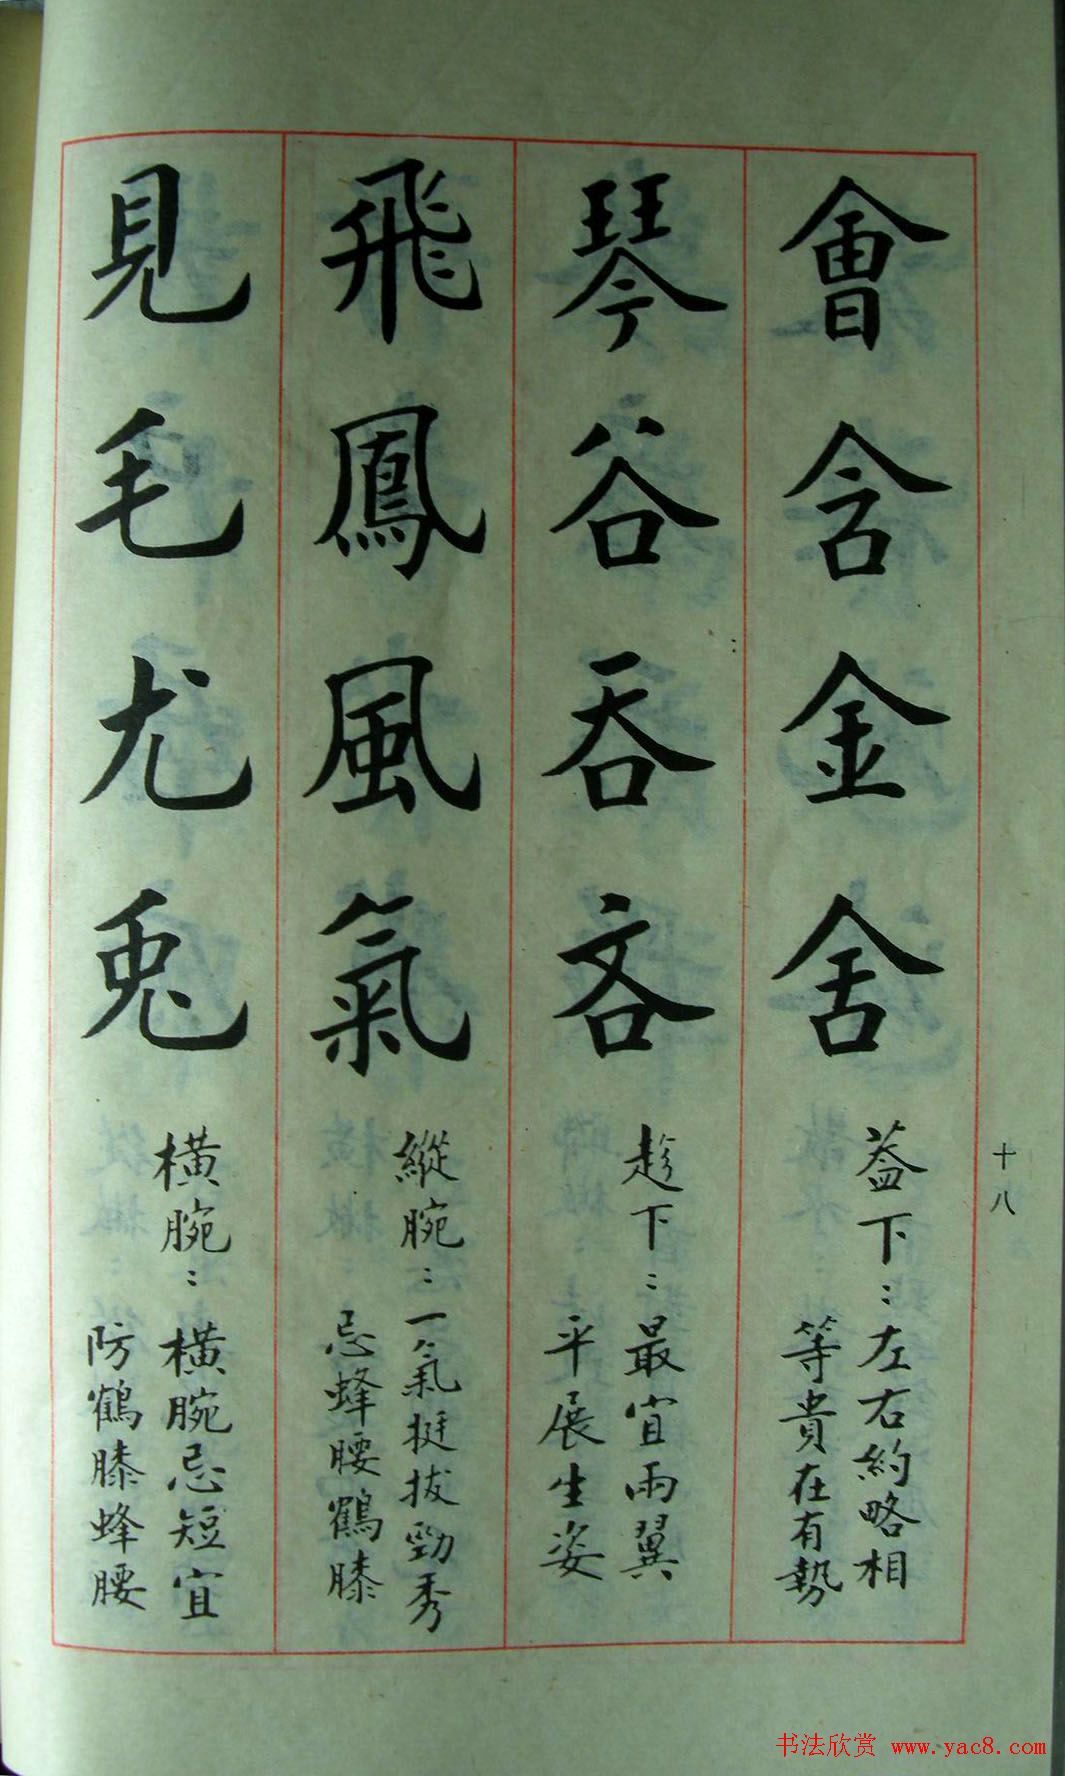 會含金舍
蓋下：左右約略相
等貴在有勢
琴谷吞吝
趁下：最宜兩翼
平展生姿
飛鳳風氣
縱腕：一氣挺拔勁秀
忌蜂腰鶴膝
見毛尤兎
橫腕：橫腕忌短宜
防鶴膝蜂腰
十八
书法欣赏 www.yac8.com